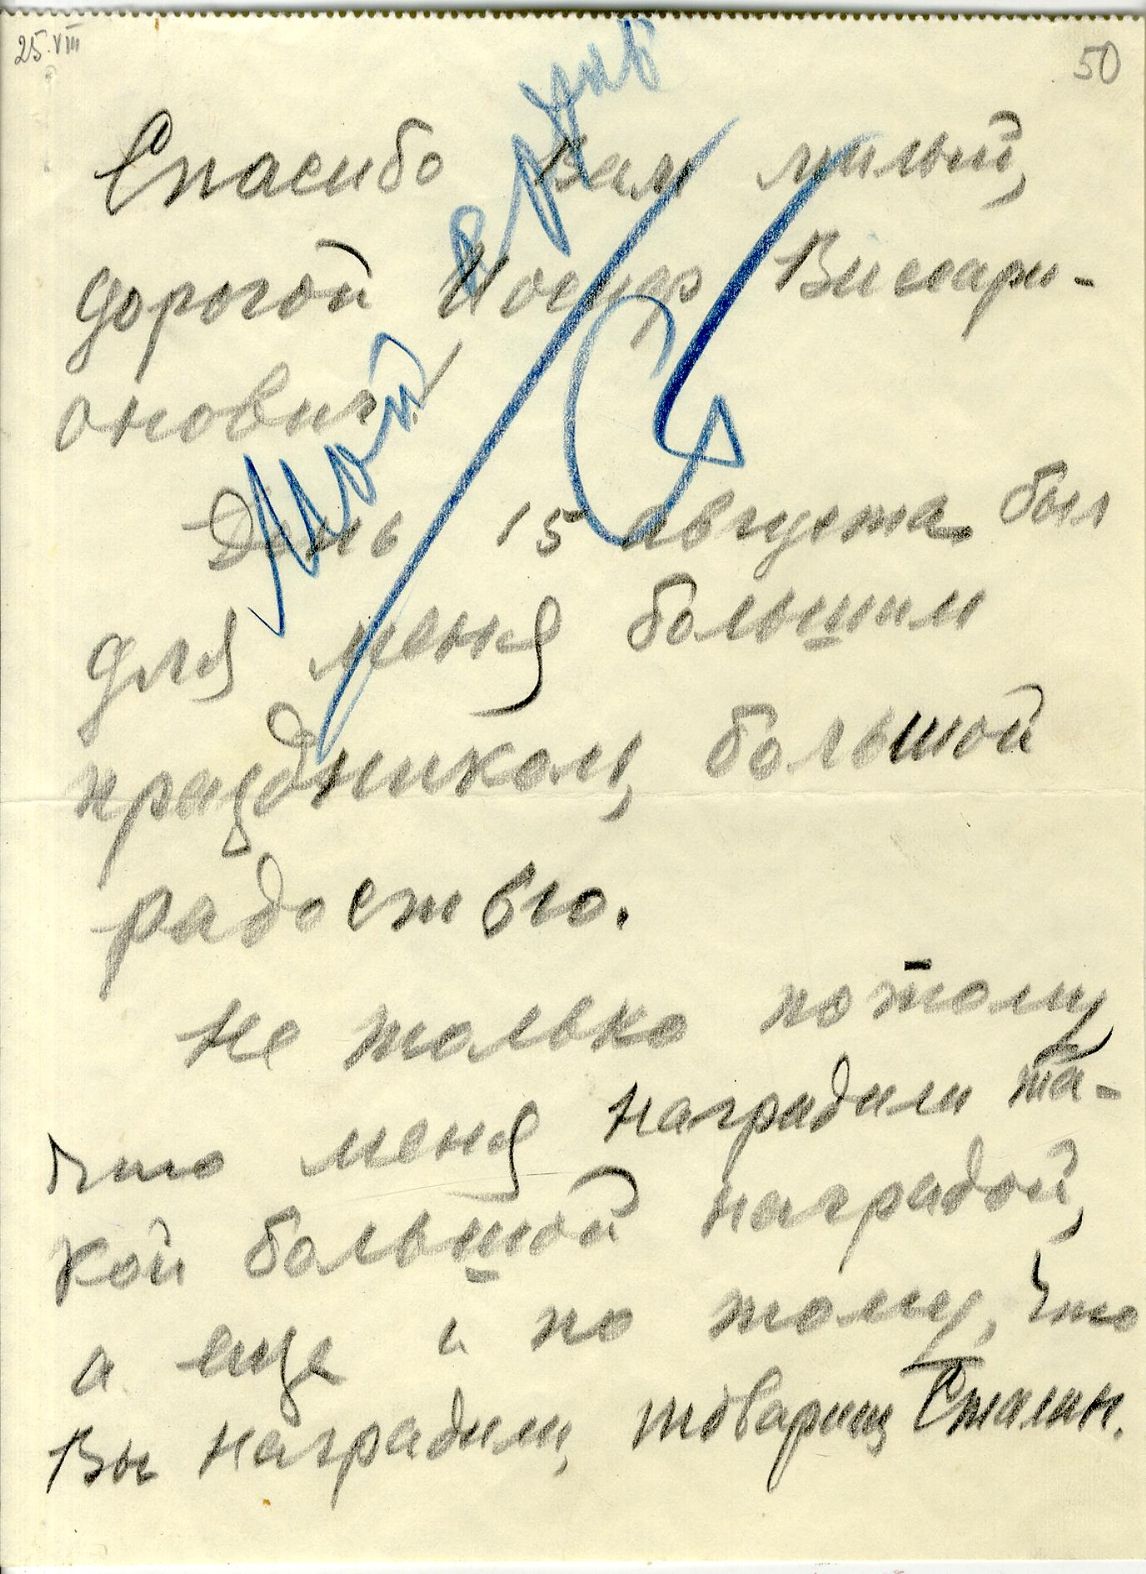 25.VIII
50
Спасибо Вам милый,
дорогой Иосиф Виссари-
онович!
Мой архив
День 15 августа был
для меня большим
праздником, большой
радостью.
Не только потому
что меня наградили та-
кой большой наградой,
а еще и по тому, что
Вы наградили, товарищ Сталин.